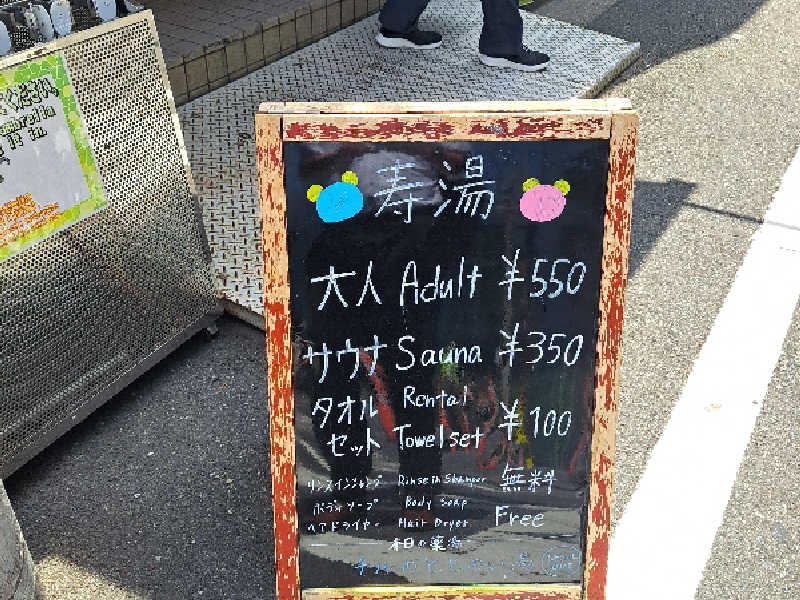 ください
umbrella
it in
寿湯
大人 Adult ¥550
サウナ Sauna ¥350
タオル Rental
セット Towel set ¥100
リンスインシャンプー Rinse in Shampoo 無料
ボディソープ Body Soap
ヘアドライヤー Hair Dryer Free
本日の薬湯